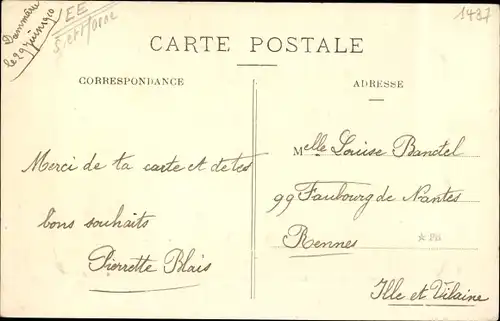 Dammarie
le 29 juin 1910
EE
Set Marne
1437
CARTE POSTALE
CORRESPONDANCE
ADRESSE
Merci de ta carte et de tes
bons souhaits
Pierrette Blais
Melle Louise Bandel
99 Faubourg de Nantes
Rennes
* PH
Ille et Vilaine